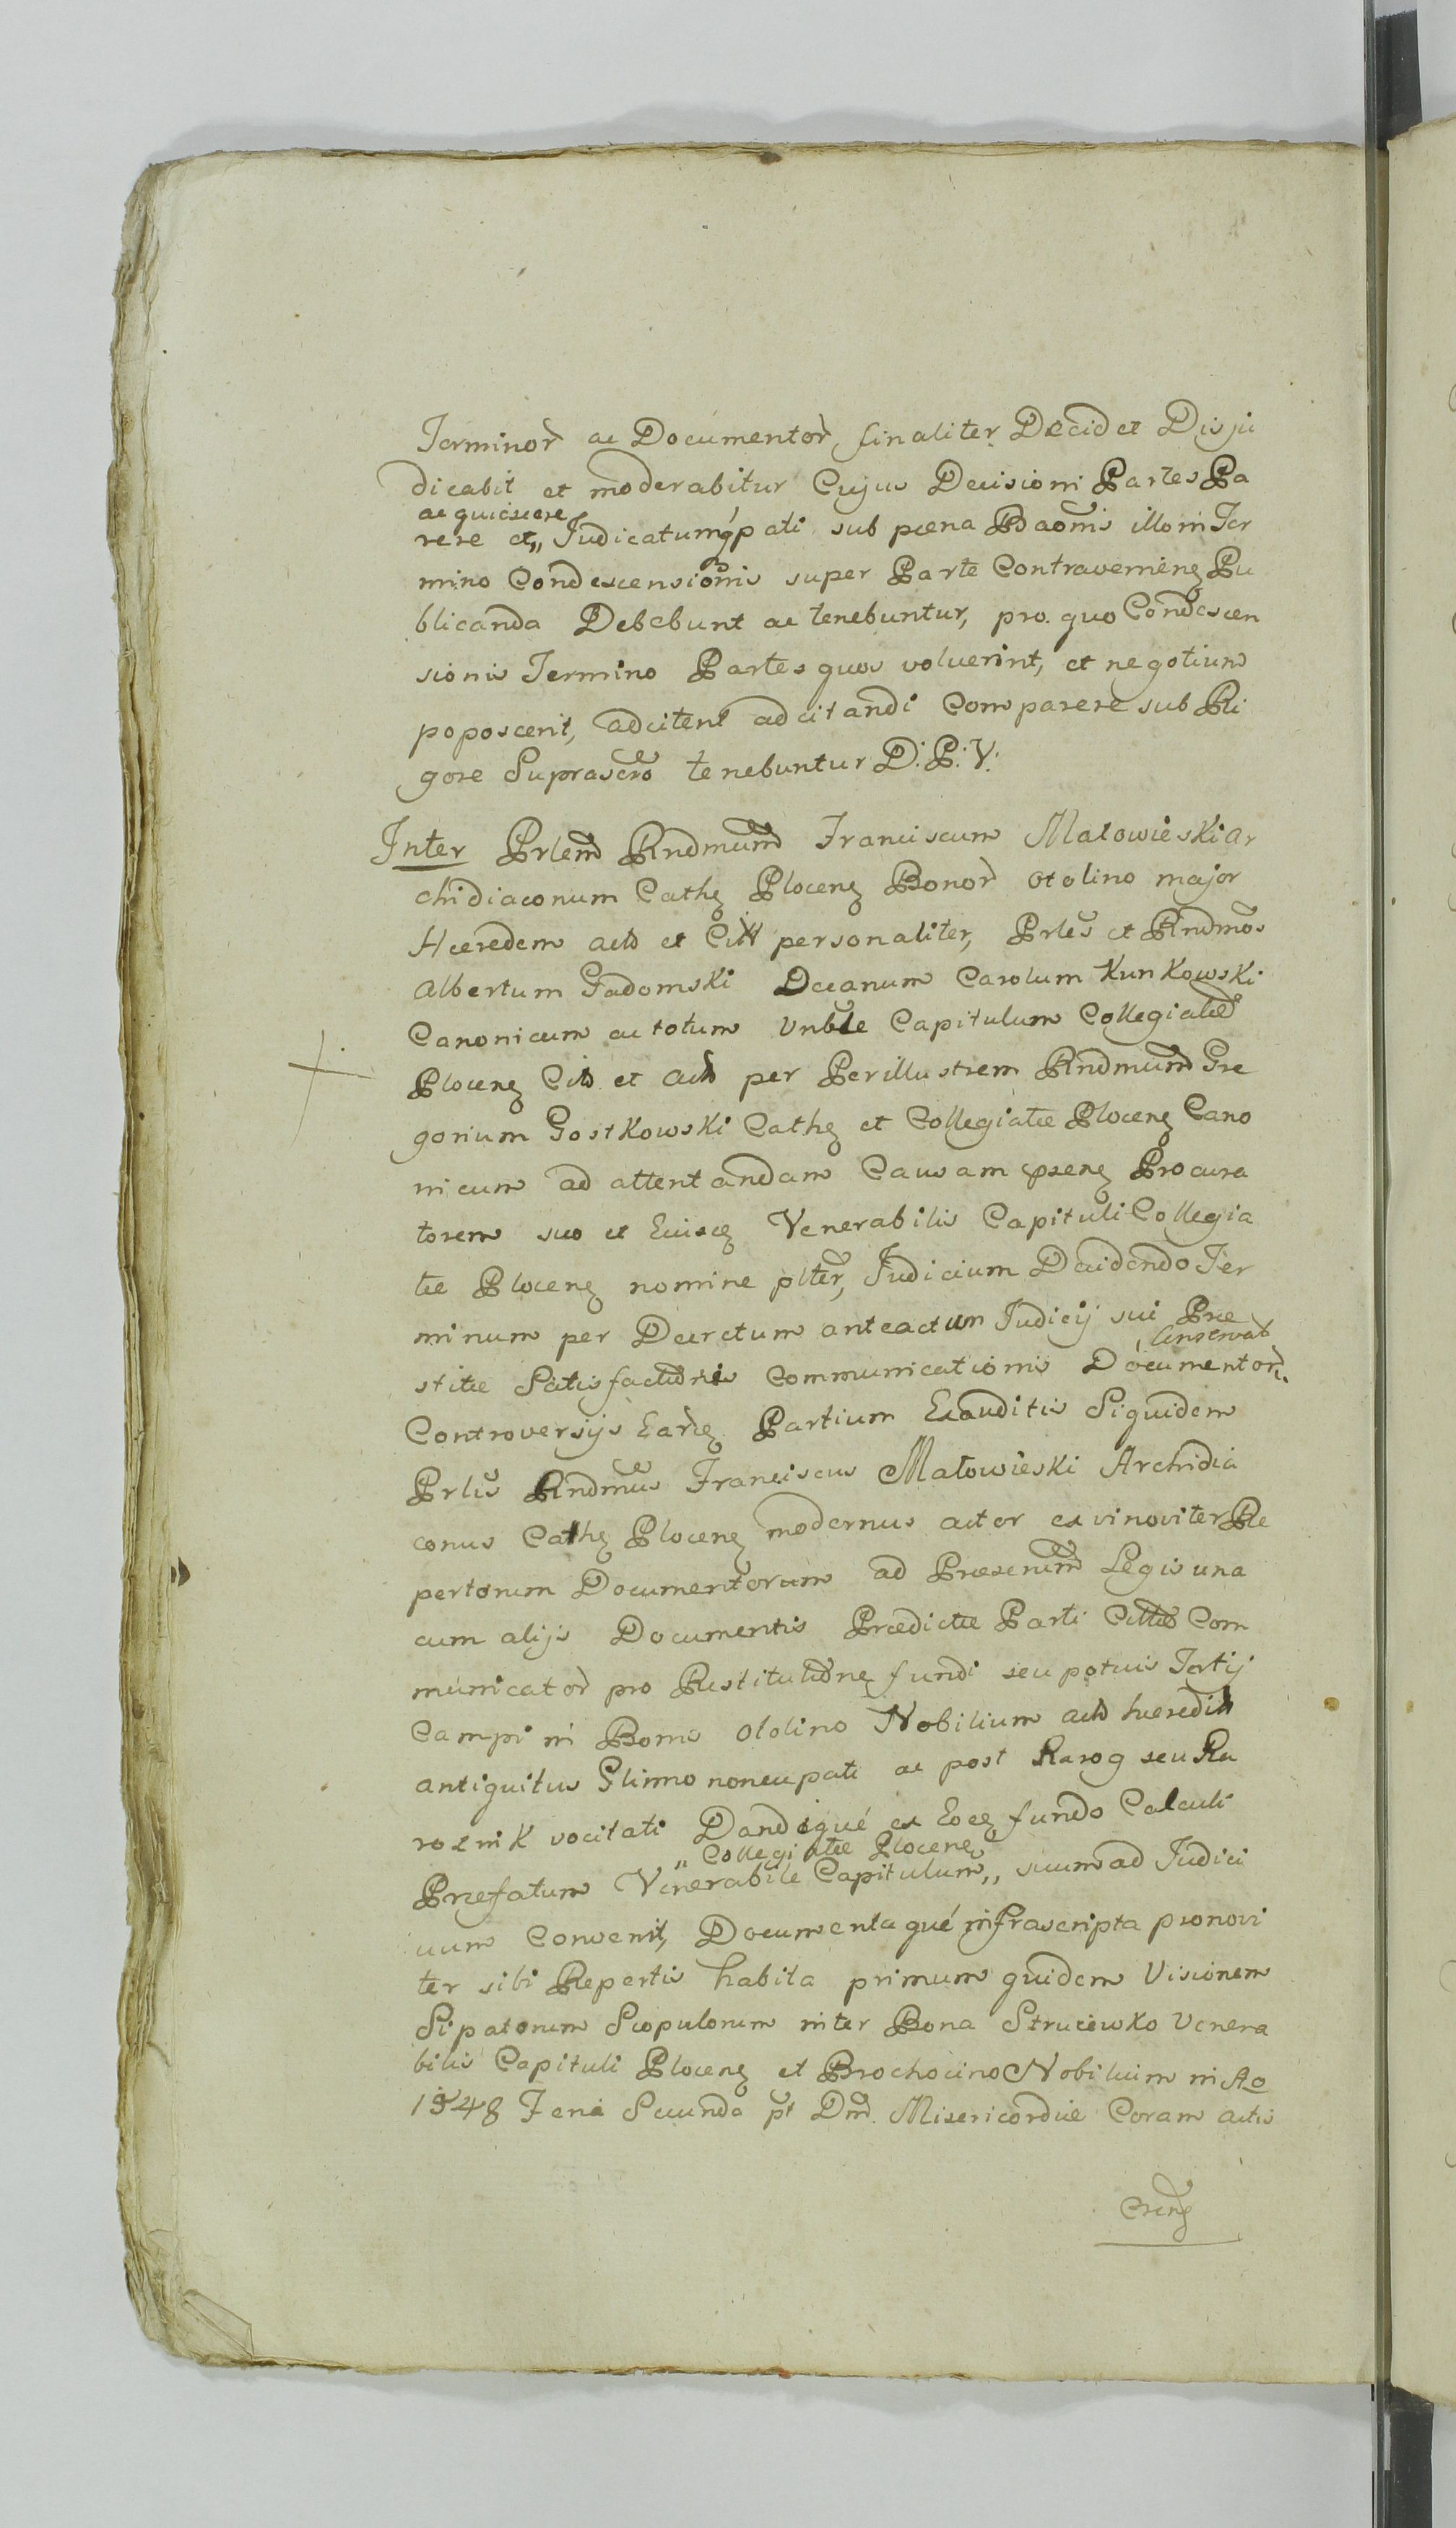 Terminor̃ ac Documentor̃, finaliter Decidet Disju
dicabit et moderabitur Cujus Decisioni Partes Pa
acquiescere
rere et,, Judicatumq́ pati sub pœna Baõnis illo in Ter
mino Condescensionis super Parte Contravenienẽ Pu
blicanda Debebunt ac tenebuntur, pro quo Condescen
sionis Termino Partes quos voluerint, et negotium
poposcerit, adcitent adcitandi Comparere sub Ri
gore Suprascrõ tenebuntur D: P: V:
Inter Prlem̃ Rndmum̃ Franciscum Małowieski Ar
chidiaconum Cathẽ Plocenẽ Bonor̃ Ototino major
Hæredem personaliter, Prles̃ et Rndmõs
Albertum Gadomski Decanum Carolum Kunkowski
Canonicum ac totum Vnble Capitulum Collegiatæ
Plocenẽ Citt et Act per Perillustrem Rndmum̃ Gre
gorium Gostkowski Cathẽ et Collegiatæ Plocenẽ Cano
nicum ad attentandam Causam psenẽ Procura
torem suo et Venerabilis Capituli Collegia
tæ Plocenẽ nomine plter̃, Judicium Decidendo Ter
minum per Decretum anteactum Judicij sui Præ
Conservat
stitæ Satisfactionis Communicationis Documentor̃,,
Controversijs Partium Exauditis Siquidem
Prlis̃ Rndmus̃ Franciscus Małowieski Archidia
conus Cathẽ Plocenẽ modernus actor ex vi noviter Re
pertorum Documentorum ad Præsenum̃ Legis una
cum alijs Documentis Prædictæ Parti Com
municator̃ pro Restitutione fundi seu potius Tertij
Campi in Bonis Ototino Nobilium
antiquitus Glinno noncupati ac post Rarog seu Ra
rožnik vocitati Dandoqué ex fundo Calculi
,, Collegiatæ Plocenẽ
Præfatum Venerabile Capitulum,, suum ad Judici
uum Convenit, Documentaqué infrascripta pronovi
ter sibi Repertis habita primum quidem Visionem
Sipatorum Scopulorum inter Bona Strucewko Venera
bilis Capituli Plocenẽ et Brochocino Nobilium in Ao
1548 Feria Secunda pt Dm̃ Misericordiæ Coram actis